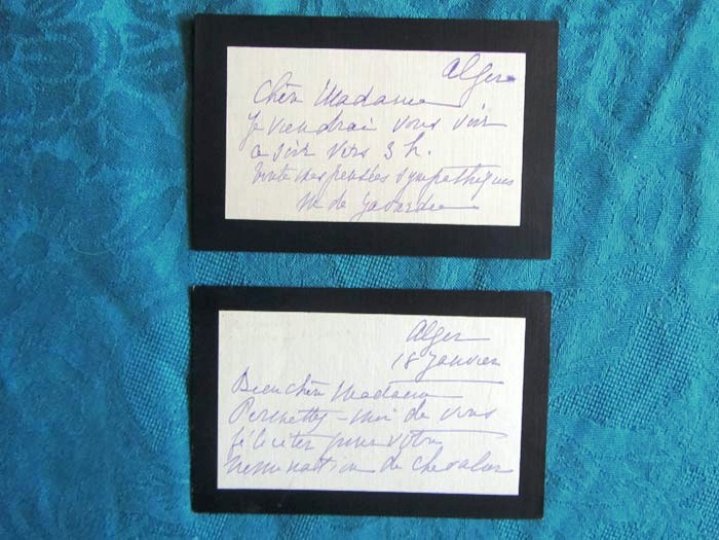 Alger
Chère Madame
Je viendrai vous voir
ce soir vers 3 h.
toutes mes pensées sympathiques
M de
Alger
18 Janvier
Bien chère Madame
Permettez-moi de vous
féliciter pour votre
nomination de chevalier